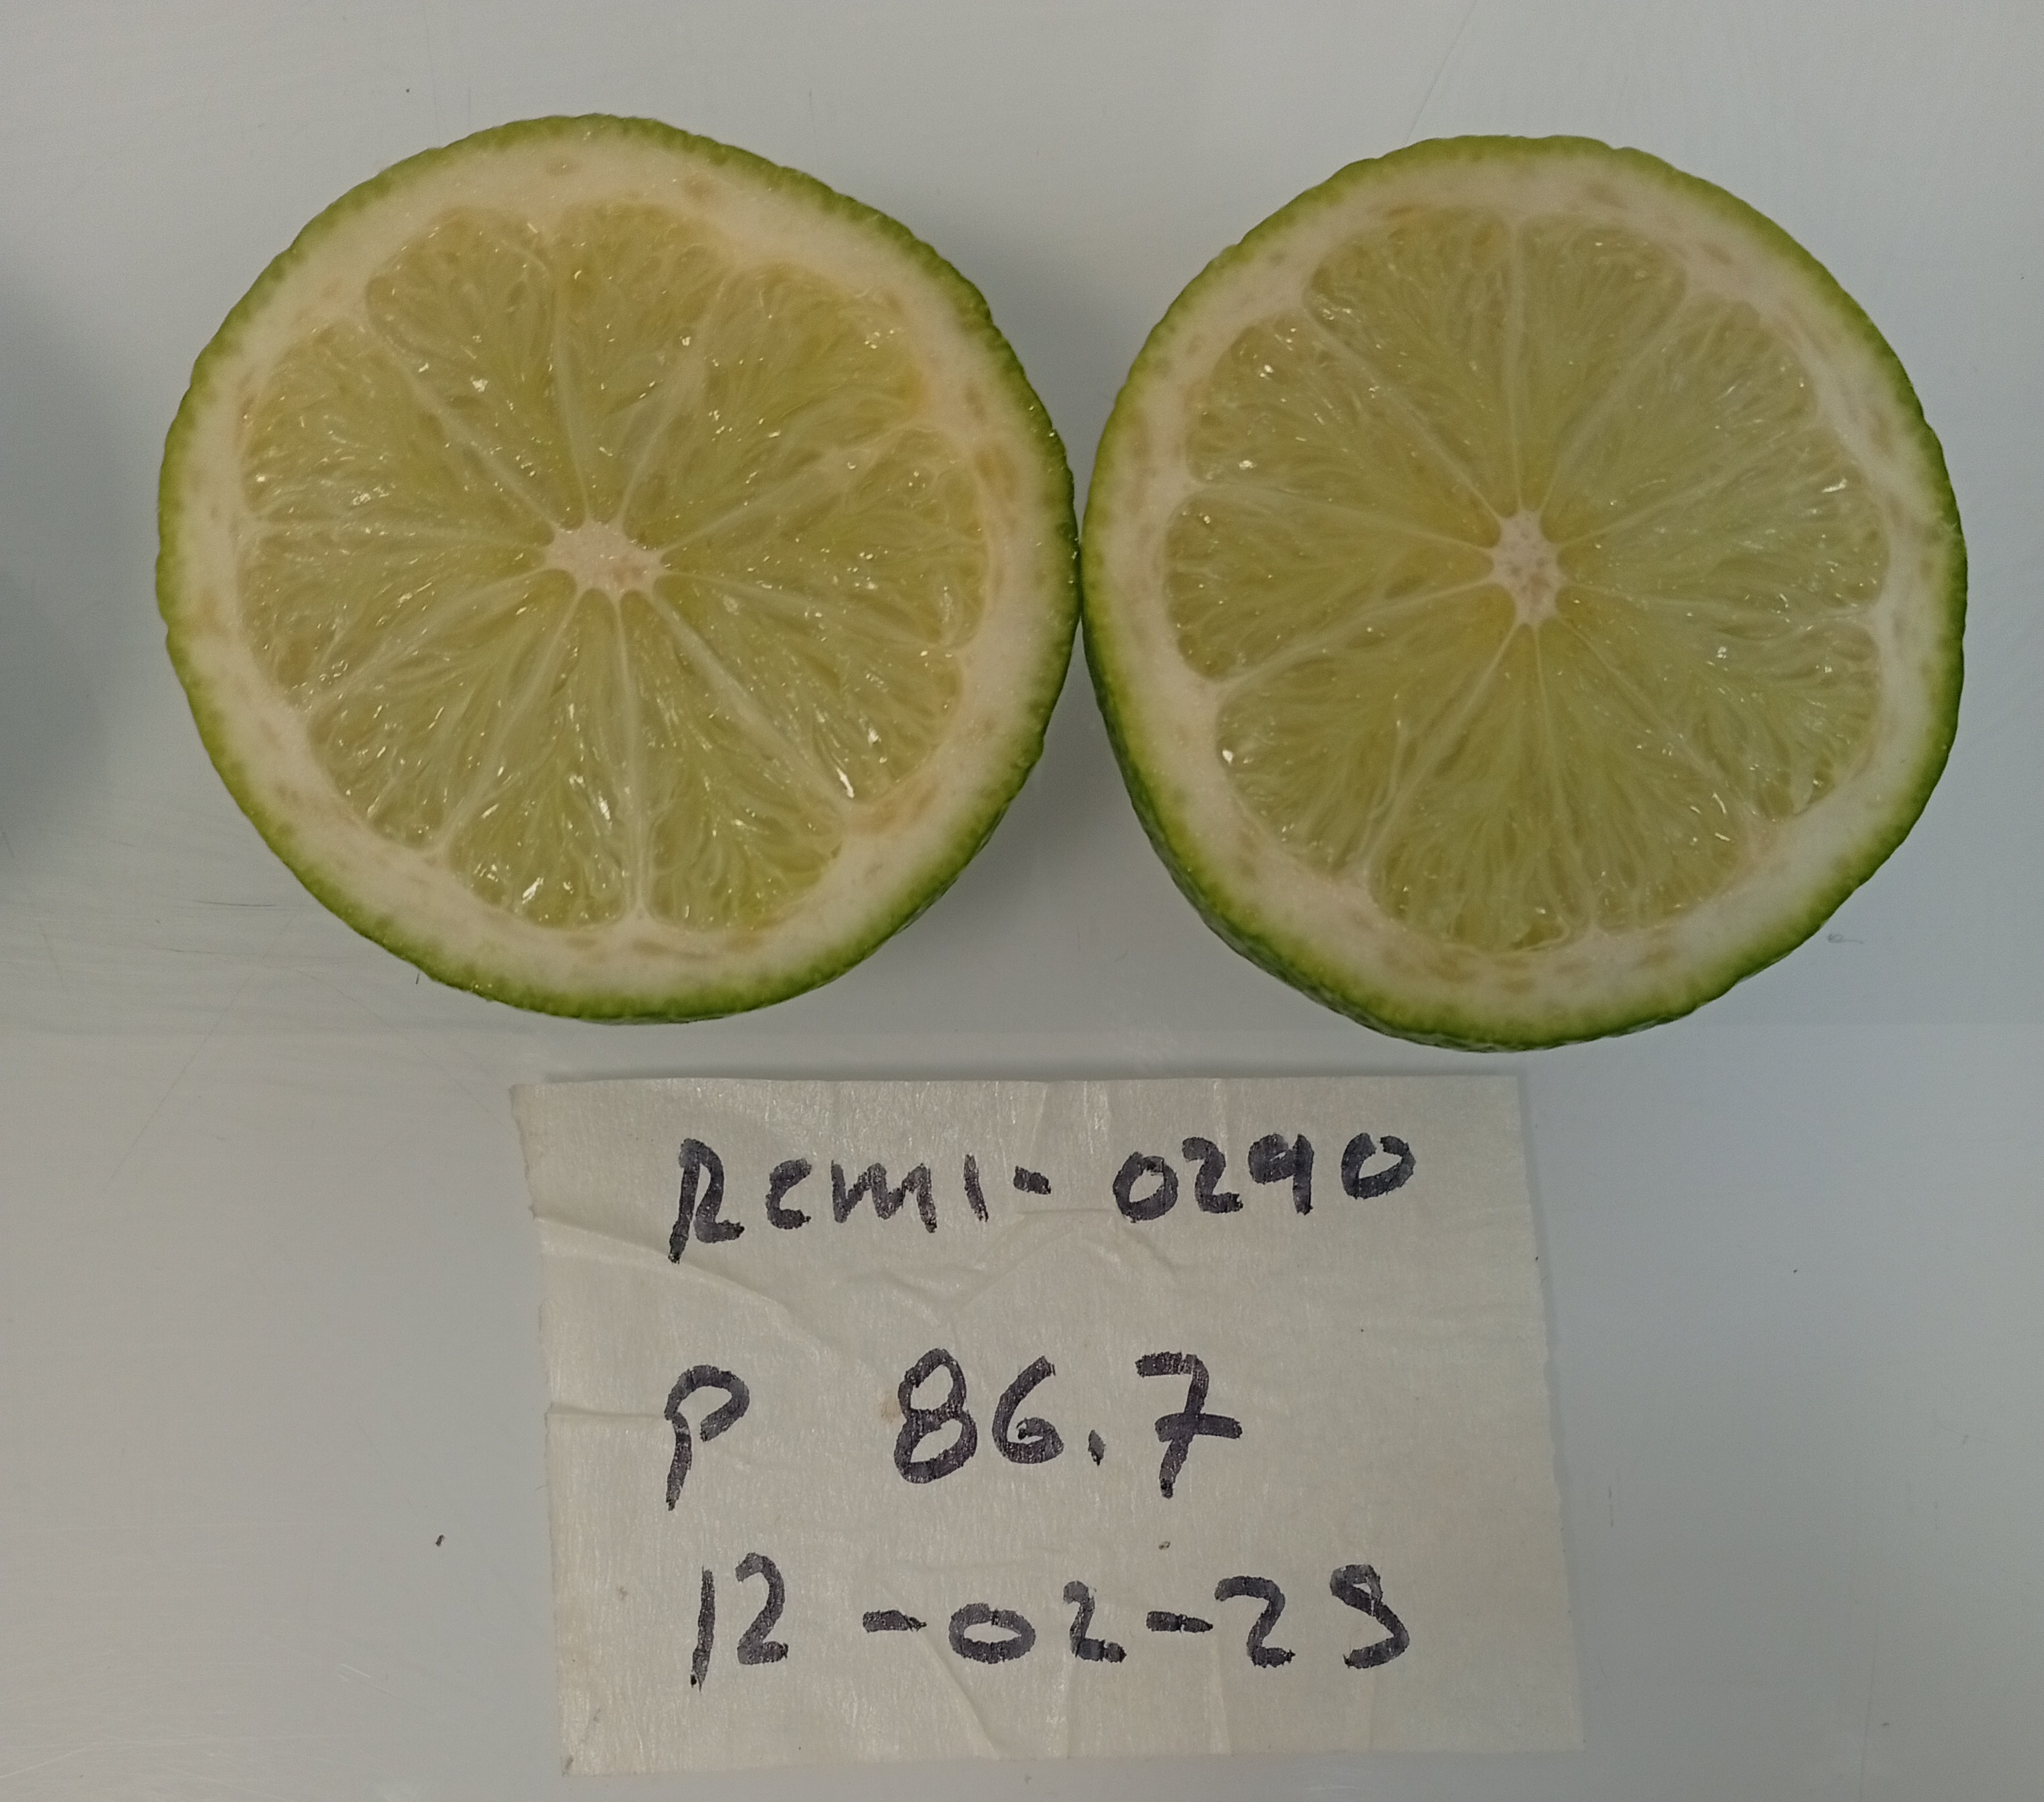 Remi-0290
P 86.7
12-02-25